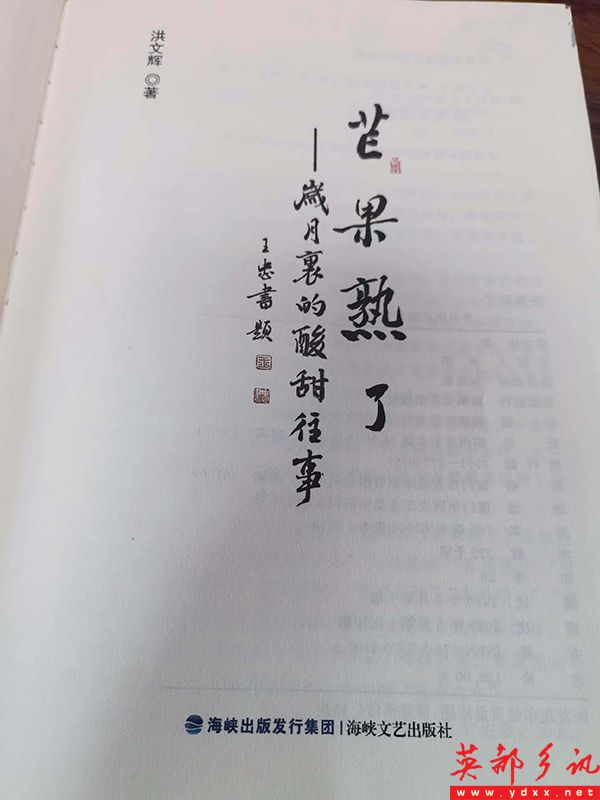 芒果熟了
——歲月裏的酸甜往事
王忠書題
洪文辉 ◎ 著
海峡出版发行集团 | 海峡文艺出版社
英都乡讯
www.ydxx.net